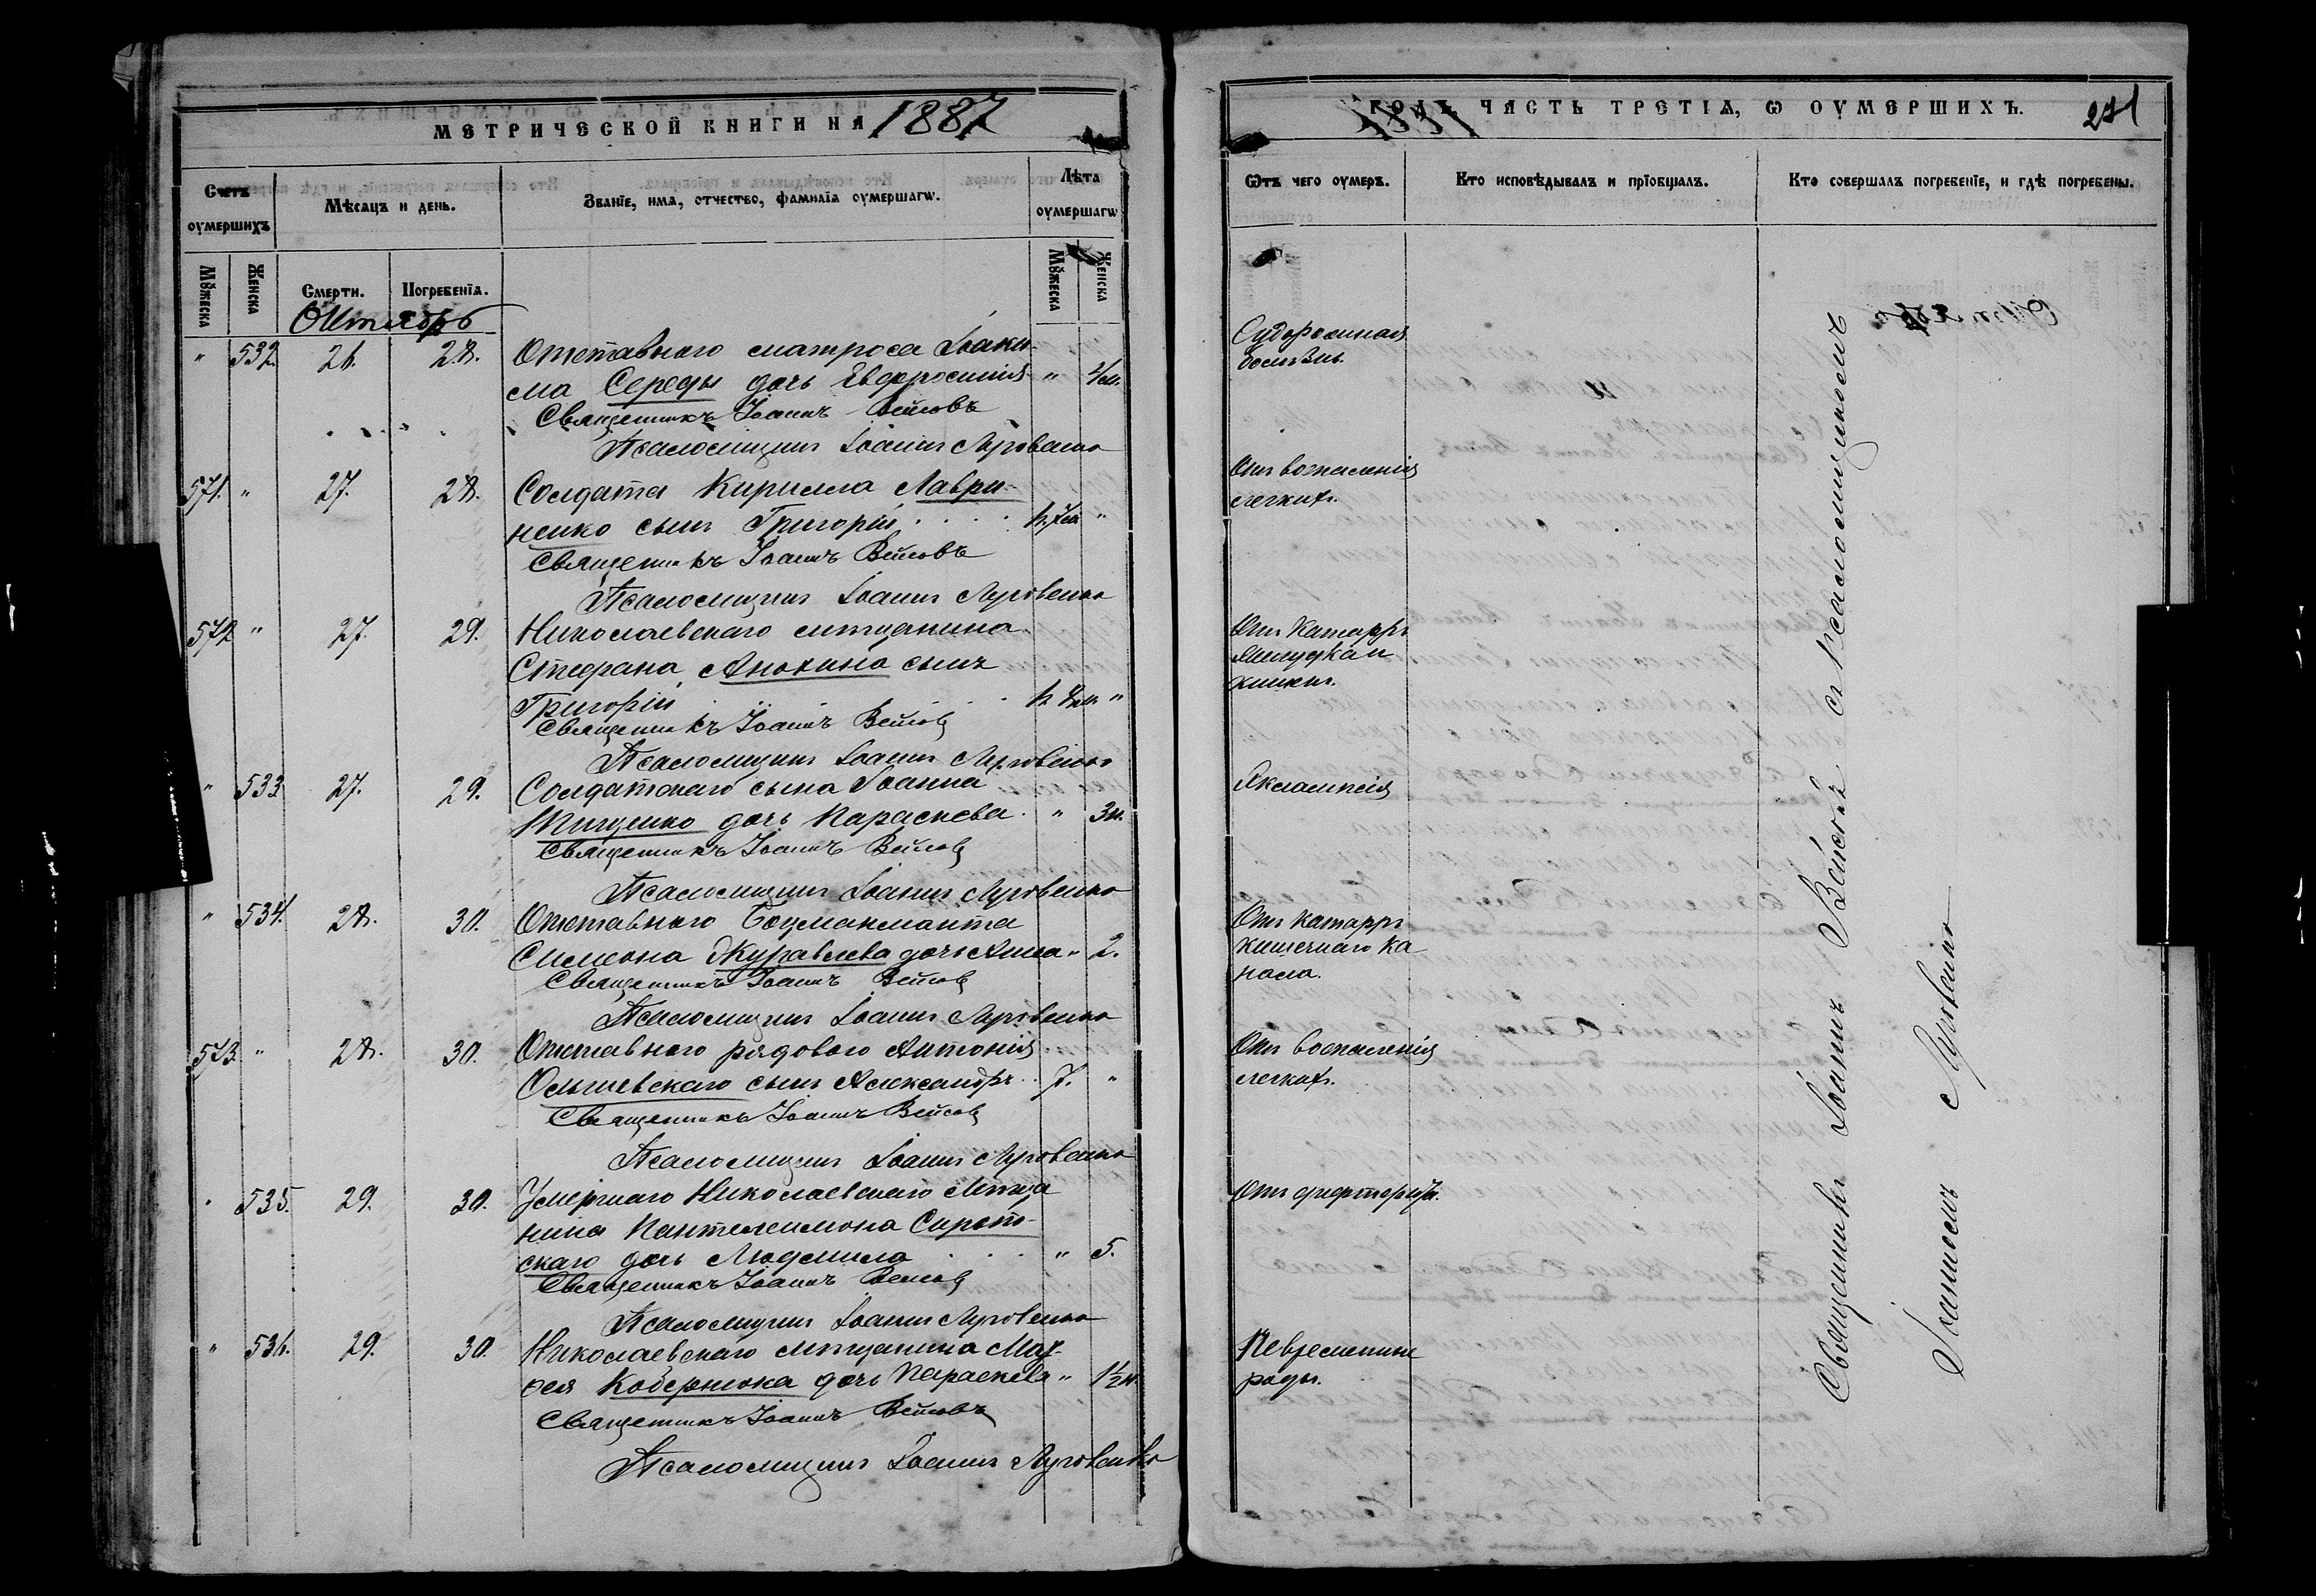 МЕТРИЧЕСКОЙ КНИГИ НА 1887
Счетъ оумершихъ
Мѣсяцъ и день.
Званїе, имя, отчество, фамилїя оумершагѡ.
Лѣта оумершагѡ
Мꙋжеска
Женска
Смерти.
Погребенїя.
Мꙋжеска
Женска
Октябрь
" 532. 26. 28. Отставного матроса Іоаки-
ма Середы дочь Евфросинія "
Священникъ Іоаннъ Вейсовъ
Псаломщикъ Іоаннъ Луговенко
571. " 27. 28. Солдата Кирилла Лаври-
ненко сынъ Григорій "
Священникъ Іоаннъ Вейсовъ
Псаломщикъ Іоаннъ Луговенко
572 " 27. 29. Николаевскаго мѣщанина
Стефана Анохина сынъ
Григорій "
Священникъ Іоаннъ Вейсовъ
Псаломщикъ Іоаннъ Луговенко
" 533 27. 29. Солдатскаго сына Іоанна
Тищенко дочь Параскева " 3н.
Священникъ Іоаннъ Вейсовъ
Псаломщикъ Іоаннъ Луговенко
" 534. 28. 30. Отставного Боцманмата
Симеона Журавлева дочь Анна " 2.
Священникъ Іоаннъ Вейсовъ
Псаломщикъ Іоаннъ Луговенко
573. " 28. 30. Отставного рядового Антонія
Ольшевскаго сынъ Александръ 7. "
Священникъ Іоаннъ Вейсовъ
Псаломщикъ Іоаннъ Луговенко
" 535. 29. 30. Умершаго Николаевскаго мѣща
нина Пантелеимона Сирот-
скаго дочь Людмила " 5.
Священникъ Іоаннъ Вейсовъ
Псаломщикъ Іоаннъ Луговенко
" 536. 29. 30. Николаевскаго мѣщанина Мат-
фея Кобернюка дочь Параскева " 1½н.
Священникъ Іоаннъ Вейсовъ
Псаломщикъ Іоаннъ Луговенко
ГОДЪ ЧАСТЬ ТРЕТІЯ, Ѡ ОУМЕРШИХЪ. 271
Ѡтъ чего оумеръ.
Кто исповѣдывалъ и прїобщалъ.
Кто совершалъ погребенїе, и гдѣ погребены.
Судорожная
болѣзнь.
Отъ воспаленія
легкихъ.
Отъ катарра
желудка и
кишекъ.
Эклампсія
Отъ катарра
кишечнаго ка
нала.
Отъ воспаленія
легкихъ.
Отъ дифтерита.
Невременные
роды.
Священникъ Іоаннъ Вейсовъ съ Псаломщикомъ
Іоанномъ Луговенко